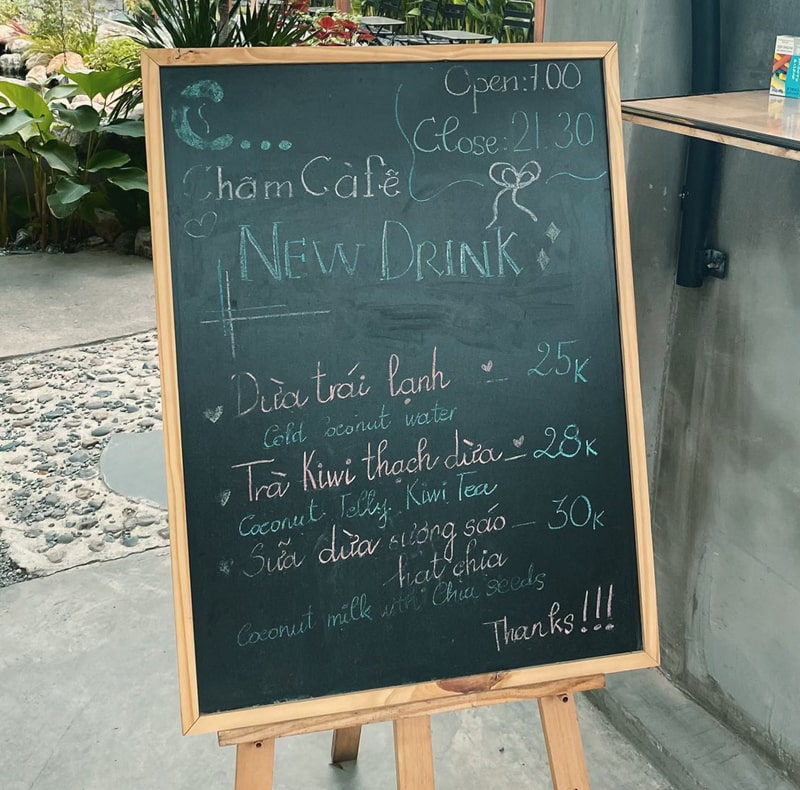 C...
Open: 7.00
Close: 21.30
Chầm Càfê
NEW DRINK
Dừa trái lạnh _ 25K
Cold coconut water
Trà Kiwi thạch dừa _ 28K
Coconut Jelly Kiwi Tea
Sữa dừa sương sáo _ 30K
hạt chia
Coconut milk with Chia seeds
Thanks!!!